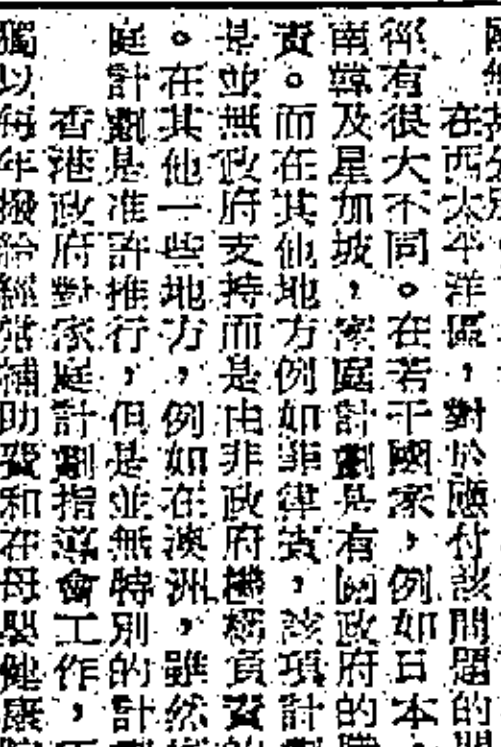 在西太平洋區，對於應付該問題的
徑有很大不同。在若干國家，例如日本
南韓及星加坡，家庭計劃是有關政府的職
責。而在其他地方例如菲律賓，該項計
是並無政府支持而是由非政府機構負責
。在其他一些地方，例如在澳洲，雖然
庭計劃是准許推行，但是並無特別的計
香港政府對家庭計劃指導會工作，
獨以每年撥給經常補助費和在母嬰健康